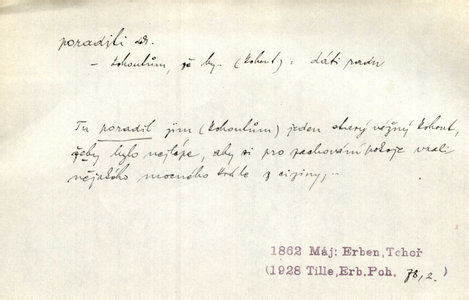 poraditi dk.
– kohoutům, že by.. (kohout) : dáti radu
Tu poradil jim (kohoutům) jeden starý vážný kohout,
žeby bylo nejlépe, aby si pro zachování pokoje vzali
nějakého mocného krále z ciziny,..
1862 Máj: Erben, Tchoř
(1928 Tille, Erb. Poh. 78, 2. )